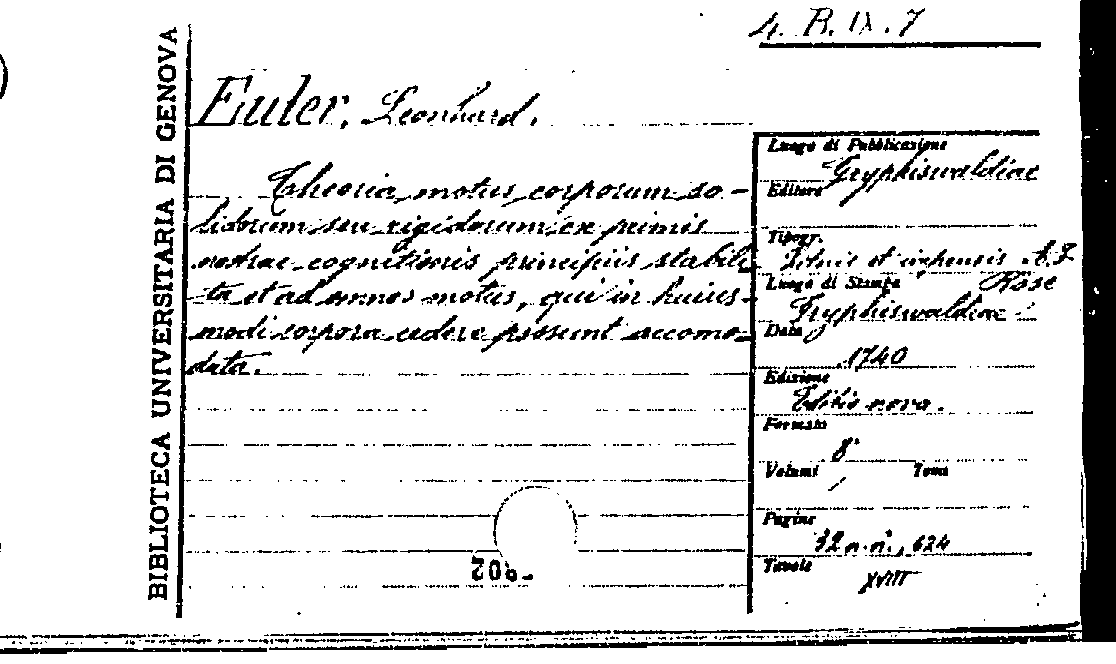 4. B. IX. 7
BIBLIOTECA UNIVERSITARIA DI GENOVA
Euler, Leonhard.
Theoria motus corporum so-
lidorum seu rigidorum ex primis
nostrae cognitionis principiis stabili
ta et ad omnes motus, qui in huius-
modi corpora cadere possunt accomo-
data.
Luogo di Pubblicazione
Gryphiswaldiae
Editore
Tipogr.
et impensis A. F.
Röse
Luogo di Stampa
Gryphiswaldiae
Data
1740
Edizione
Editio nova.
Formato
8°
Volumi Tomi
/
Pagine
32 n. n., 624
Tavole
XVIII